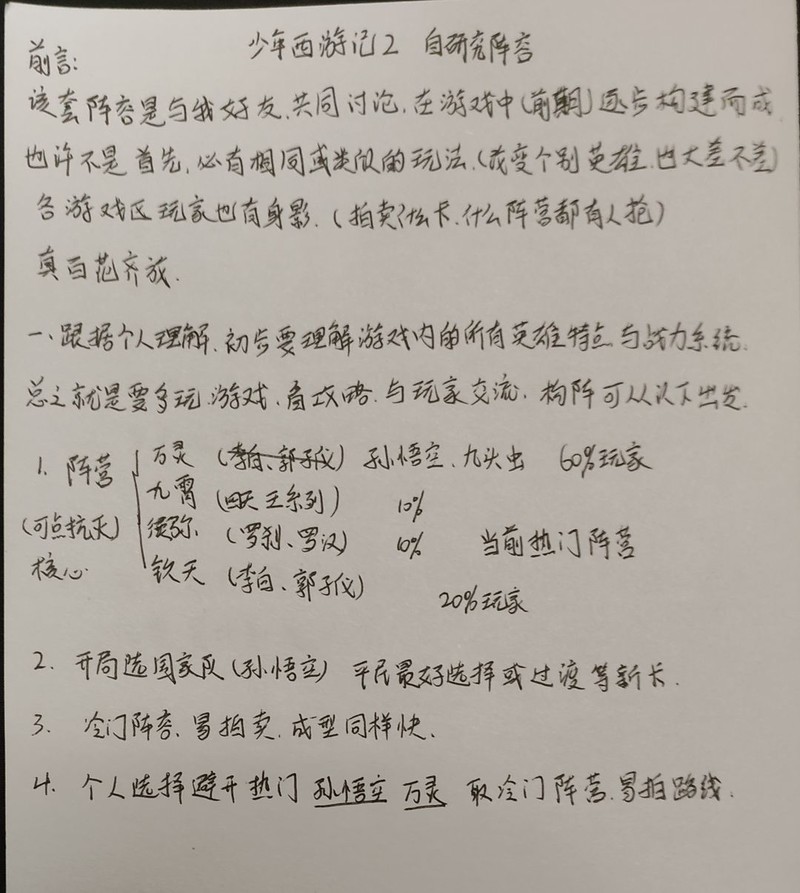 少年西游记2 自研究阵容
前言:
该套阵容是与我好友、共同讨论,在游戏中(前期)逐步构建而成
也许不是首先,必有相同或类似的玩法.(改变个别英雄.也大差不差)
各游戏区玩家也有身影.(拍卖什么卡.什么阵营都有人抢)
真百花齐放.
一、跟据个人理解.初步要理解游戏内的所有英雄特点与战力系统.
总之就是要多玩.游戏、看攻略.与玩家交流.构阵可从以下出发.
1. 阵营 万灵 (李白、郭子仪) 孙悟空、九头虫 60%玩家
九霄 (四天王系列) 10%
(可点抗灭) 须弥 (罗刹、罗汉) 10% 当前热门阵营
核心 钦天 (李白、郭子仪)
20%玩家
2. 开局选国家队(孙悟空) 平民最好选择或过渡等新卡.
3. 冷门阵容.易拍卖.成型同样快、
4. 个人选择避开热门 孙悟空 万灵 取冷门阵营.易拍路线.